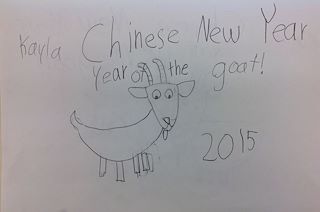 Kayla Chinese New Year
Year of the goat!
2015